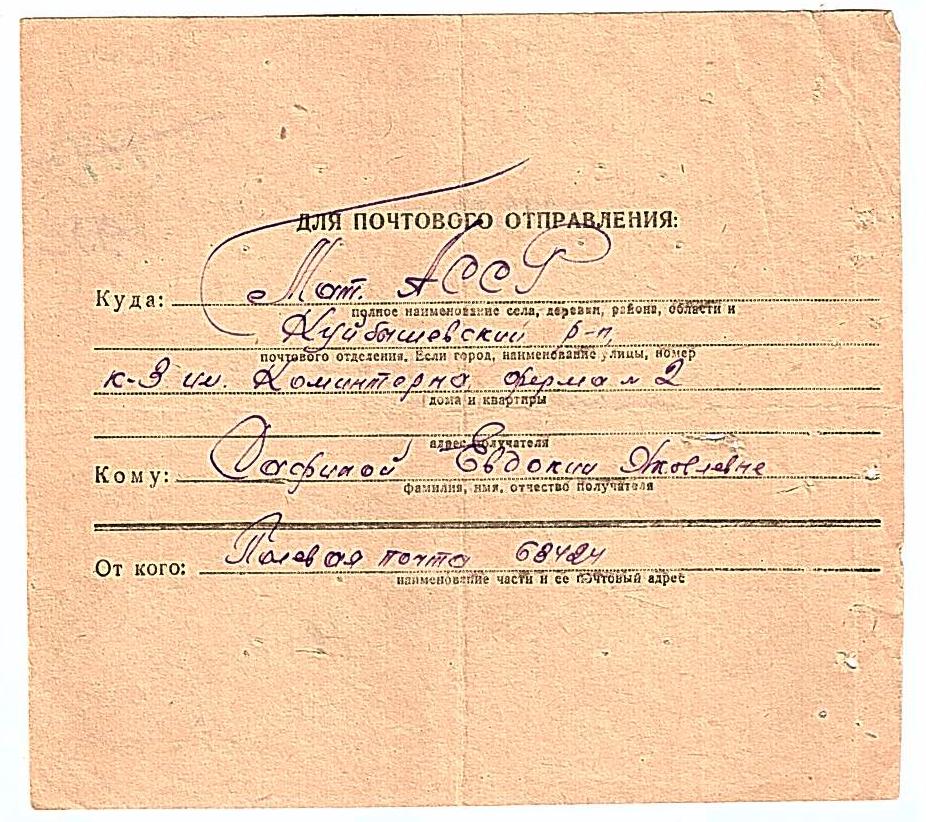 ДЛЯ ПОЧТОВОГО ОТПРАВЛЕНИЯ:
Куда: Тат. АССР
полное наименование села, деревни, района, области и
Куйбышевский р-н,
почтового отделения. Если город, наименование улицы, номер
к-з им. Коминтерна ферма № 2
дома и квартиры
адрес получателя
Кому: Сафиной Евдокии Яковлевне
фамилия, имя, отчество получателя
Полевая почта 68424
От кого:
наименование части и ее почтовый адрес